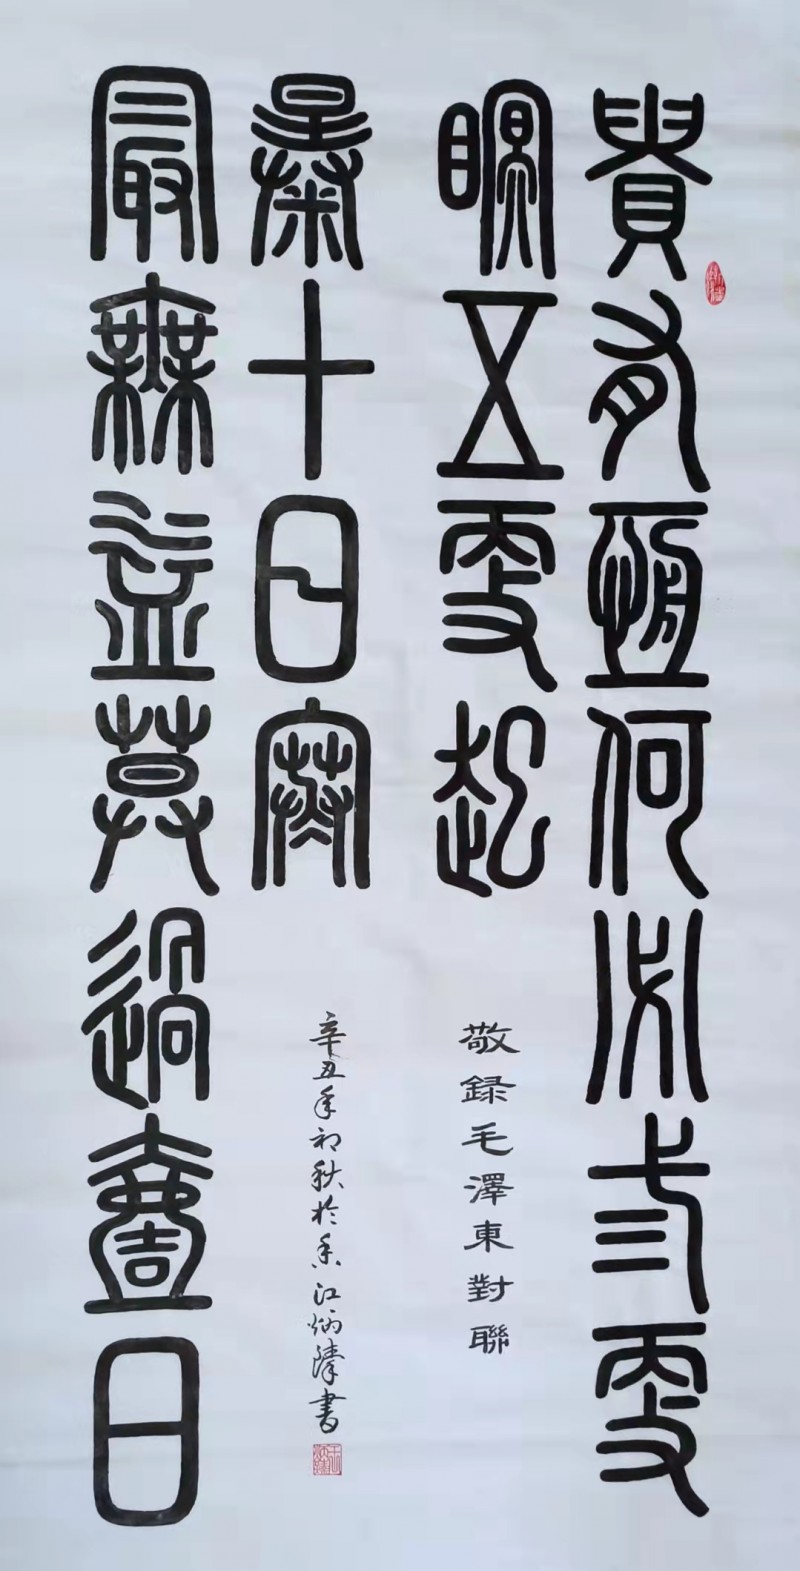 貴有恆何必弎更
瞑五更起
敬録毛澤東對聯
最無益莫過壹日
曓十日寒
辛丑年初秋於香江炳
書